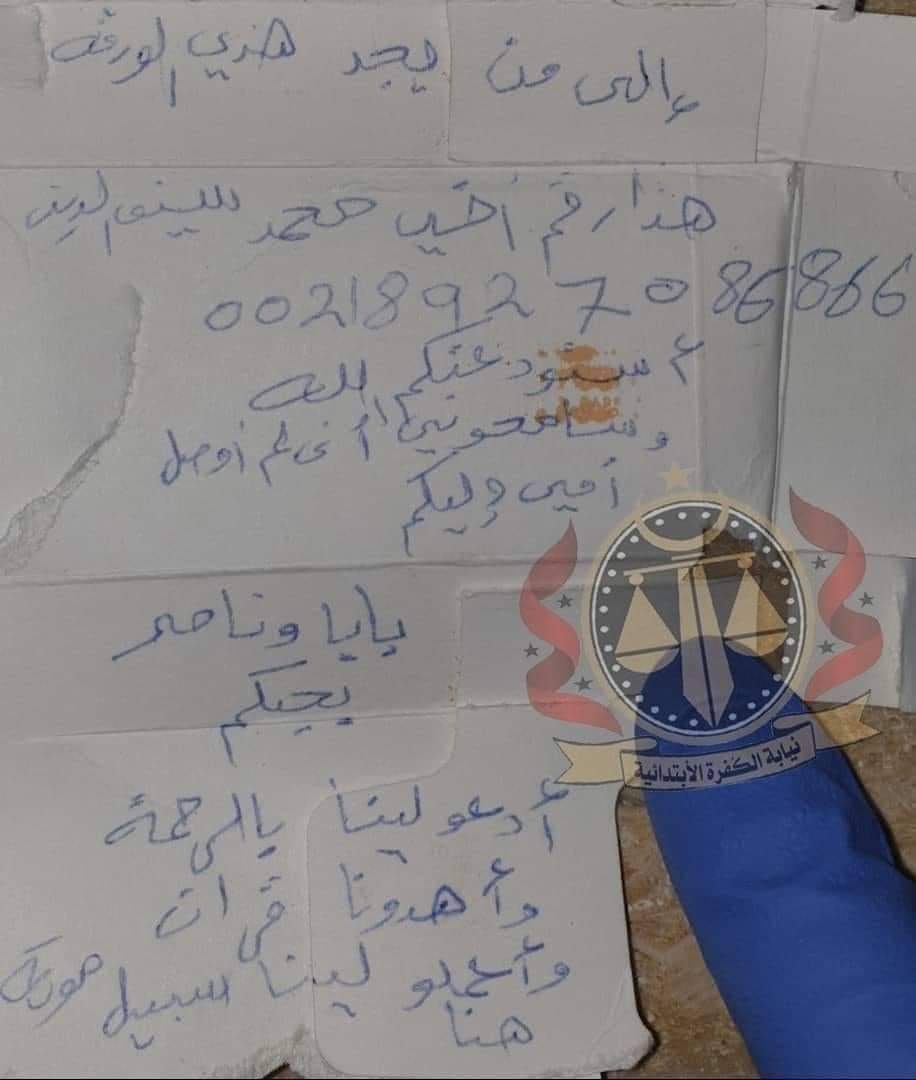 إلى من يجد هذي الورقة
هذا رقم أخي محمد
00218927086866
أستودعتكم الله
وسامحوني أنى لم أوصل
أمي إليكم
بابا وناصر
يحبكم
أدعو لينا بالرحمة
وأهدونا قرآن
وأعملو لينا سبيل
هنا
نيابة الكفرة الأبتدائية